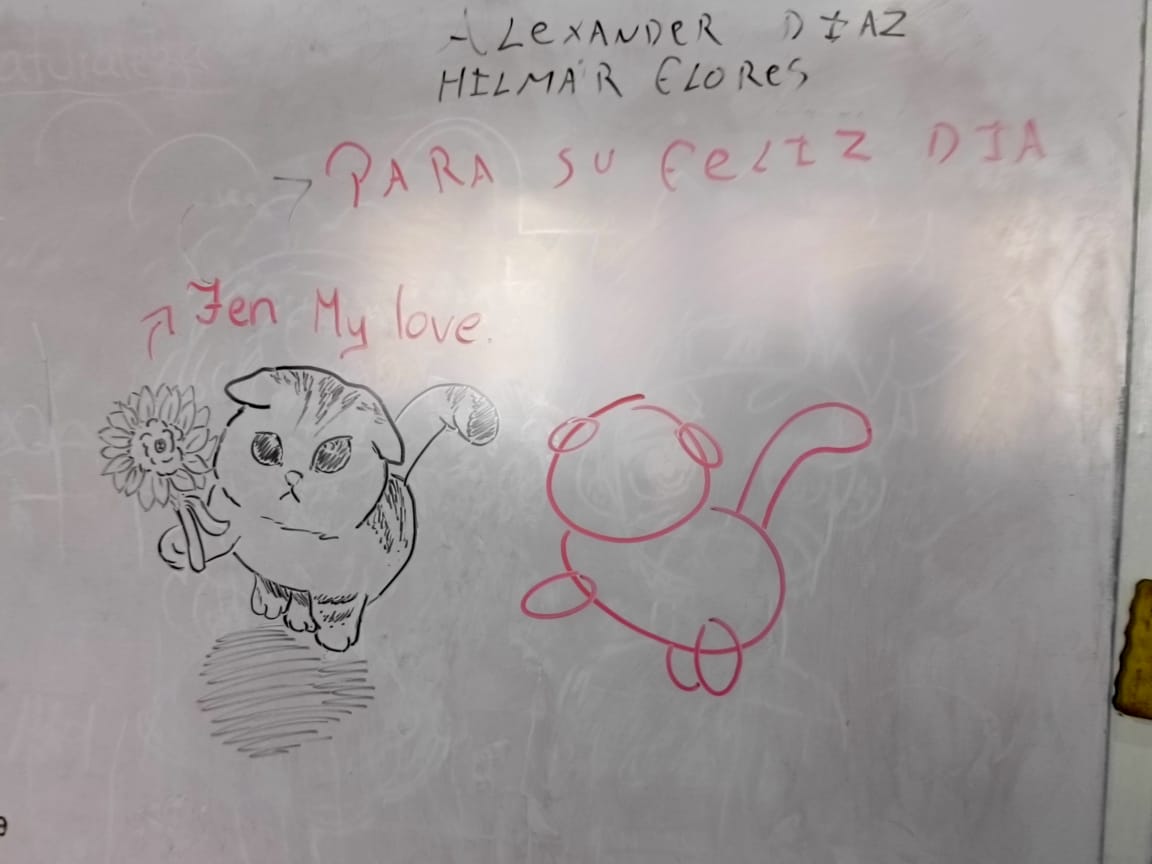 ALexANDeR DIAZ
HILMAR FLOReS
PARA SU FeLIZ DIA
Jen My love.